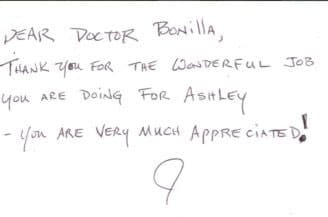 DEAR DOCTOR BONILLA,
THANK YOU FOR THE WONDERFUL JOB
YOU ARE DOING FOR ASHLEY
- YOU ARE VERY MUCH APPRECIATED!